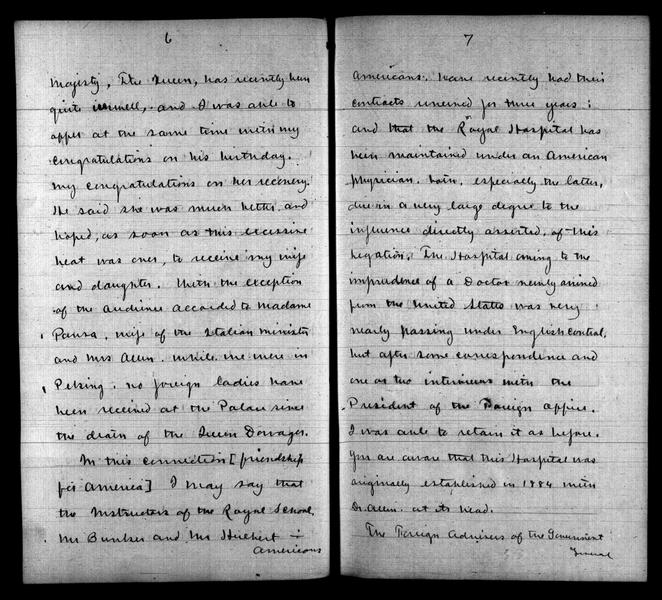 6
Majesty, The Queen, has recently been
quite unwell, and I was able to
offer at the same time with my
congratulations on his birthday.
my congratulations on her recovery.
He said she was much better and
hoped, as soon as this excessive
heat was over, to receive my wife
and daughter. With the exception
of the audience accorded to Madame
Pansa, wife of the Italian minister
and Mrs Allen. while we were in
Peking. no foreign ladies have
been received at the Palace since
the death of the Queen Dowager.
In this connection [friendship
for America] I may say that
the Instructors of the Royal School,
Mr Bunker and Mr Hulbert –
Americans
7
Americans. have recently had their
contracts renewed for three years;
and that the Royal Hospital has
been maintained under an American
physician. both, especially the latter,
due in a very large degree to the
influence directly asserted, of this
Legation. The Hospital owing to the
imprudence of a Doctor newly arrived
from the United States was very
nearly passing under English control,
but after some correspondence and
one or two interviews with the
President of the Foreign office.
I was able to retain it as before.
You are aware that this Hospital was
originally established in 1884 with
Dr. Allen. at its head.
The Foreign Advisers of the Government